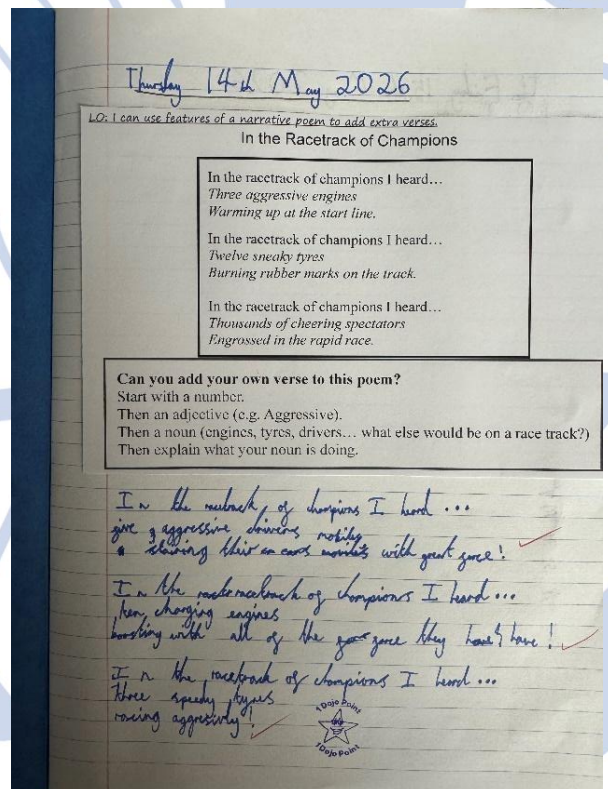 Thursday 14th May 2026
LO: I can use features of a narrative poem to add extra verses.
In the Racetrack of Champions
In the racetrack of champions I heard…
Three aggressive engines
Warming up at the start line.
In the racetrack of champions I heard…
Twelve sneaky tyres
Burning rubber marks on the track.
In the racetrack of champions I heard…
Thousands of cheering spectators
Engrossed in the rapid race.
Can you add your own verse to this poem?
Start with a number.
Then an adjective (e.g. Aggressive).
Then a noun (engines, tyres, drivers… what else would be on a race track?)
Then explain what your noun is doing.
In the of champions I heard ...
aggressive drivers
their cars with great !
In the racetrack of champions I heard ...
ten charging engines
with all of the they have !
In the racetrack of champions I heard ...
three speedy tyres
racing aggresivly!
1 Dojo Point
1 Dojo Point